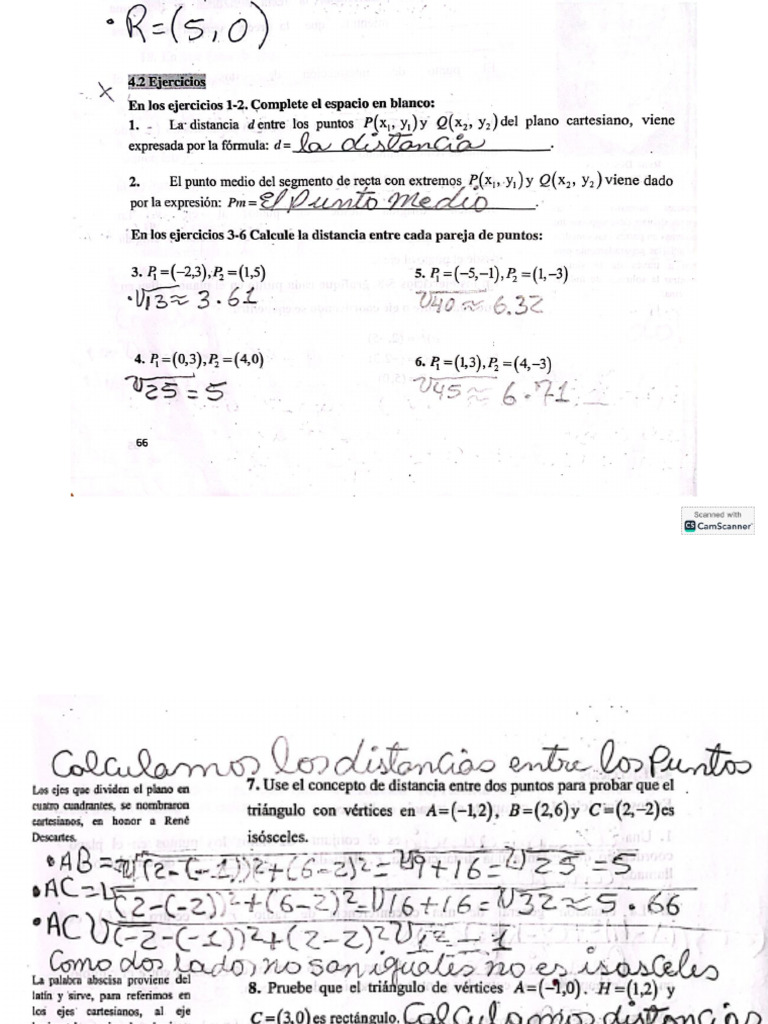 • R=(5,0)
4.2 Ejercicios
x
En los ejercicios 1-2. Complete el espacio en blanco:
1. - La distancia d entre los puntos P(x₁, y₁) y Q(x₂, y₂) del plano cartesiano, viene
expresada por la fórmula: d= la distancia.
2. El punto medio del segmento de recta con extremos P(x₁, y₁) y Q(x₂, y₂) viene dado
por la expresión: Pm= El Punto Medio.
En los ejercicios 3-6 Calcule la distancia entre cada pareja de puntos:
3. P₁=(−2,3), P₂=(1,5)
5. P₁=(−5,−1), P₂=(1,−3)
• √13 ≈ 3.61
√40 ≈ 6.32
4. P₁=(0,3), P₂=(4,0)
6. P₁=(1,3), P₂=(4,−3)
√25 = 5
√45 ≈ 6.71
66
Scanned with
CS CamScanner
Calculamos los distancias entre los Puntos
Los ejes que dividen el plano en
cuatro cuadrantes, se nombraron
cartesianos, en honor a René
Descartes.
7. Use el concepto de distancia entre dos puntos para probar que el
triángulo con vértices en A=(−1,2), B=(2,6) y C=(2,−2) es
isósceles.
• AB = √(2-(-1))²+(6-2)² = √9+16 = √25 = 5
• AC = √(2-(-2))²+(6-2)² = √16+16 = √32 ≈ 5.66
• AC √(-2-(-1))²+(2-2)² √1² = 1
Como dos lado, no san iguales no es isasceles
La palabra abscisa proviene del
latín y sirve, para referimos en
los ejes cartesianos, al eje
8. Pruebe que el triángulo de vértices A=(−1,0). H=(1,2) y
C=(3,0) es rectángulo. Calculamos distancias